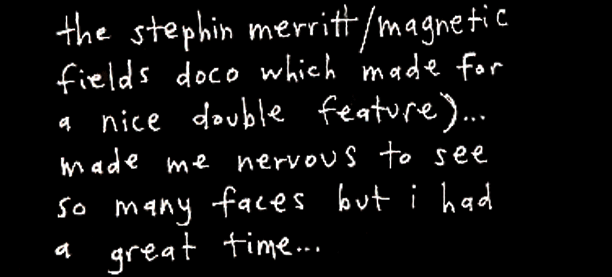 the stephin merritt/magnetic
fields doco which made for
a nice double feature)...
made me nervous to see
so many faces but i had
a great time...